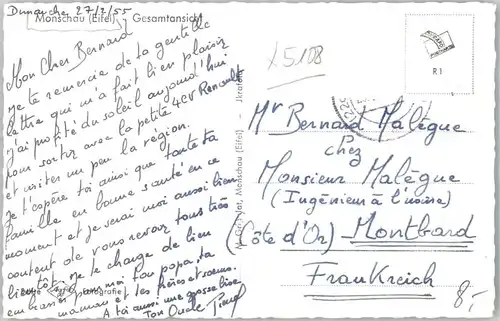 Dimanche 27/2/55
Monschau (Eifel) Gesamtansicht
Mon Cher Bernard
je te remercie de ta gentille
lettre qui m'a fait bien plaisir
j'ai profité du soleil aujourd'hui
pour sortir avec la petite 4CV Renault
et visiter un peu la région.
Je t'espère toi ainsi que toute ta
famille en bonne santé en ce
moment et je serai moi aussi bien
content de vous revoir tous très
bientôt. je te charge de bien
embrasser pour moi ton papa, ta
maman et tes frères et soeurs.
A toi aussi une grosse bise
Ton Oncle
Monschau (Eifel)
X5108
R1
Mr Bernard Malègue
chez
Monsieur Malègue
(Ingénieur à l'usine)
Montbard
(Côte d'Or)
Frankreich
8,-